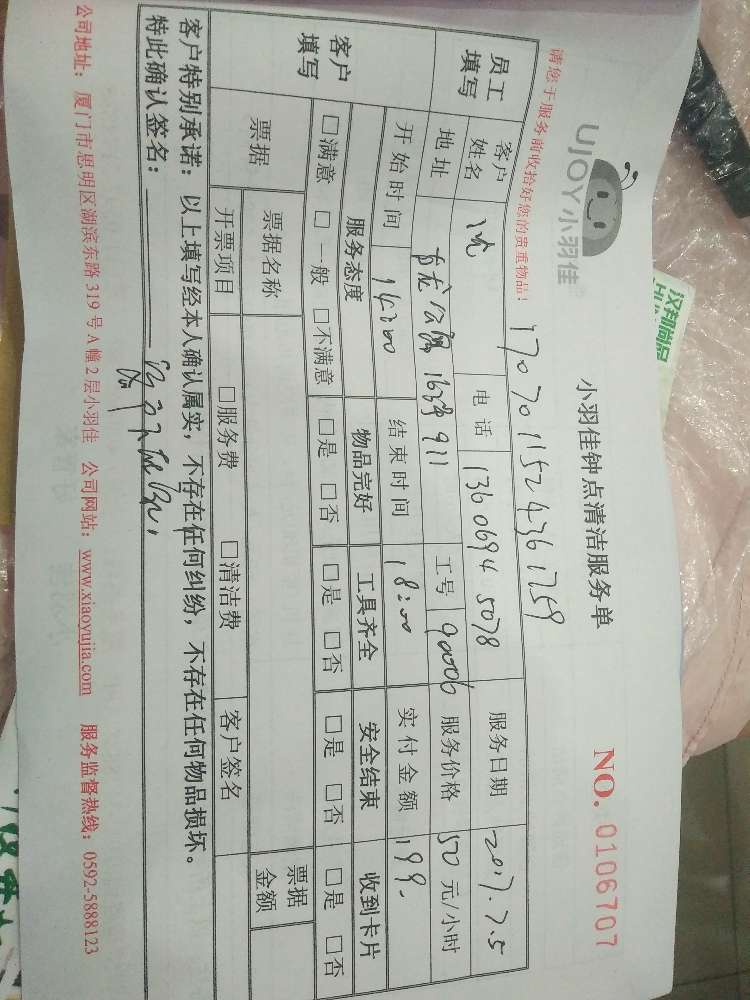 UJOY小羽佳
小羽佳钟点清洁服务单
NO. 0106707
请您于服务前收拾好您的贵重物品！
1707011524361759
员工填写 客户姓名 沈 电话 13606945078 服务日期 2017.7.5
地址 16# 911 工号 90006 服务价格 50 元/小时
开始时间 14:00 结束时间 18:00 实付金额 199.
客户填写 服务态度 物品完好 工具齐全 安全结束 收到卡片
□满意 □一般 □不满意 □是 □否 □是 □否 □是 □否 □是 □否
票据 票据名称 票据金额
开票项目 □服务费 □清洁费 客户签名
客户特别承诺：以上填写经本人确认属实，不存在任何纠纷，不存在任何物品损坏。
特此确认签名：
公司地址：厦门市思明区湖滨东路 319 号 A 幢 2 层小羽佳 公司网站：www.xiaoyujia.com 服务监督热线：0592-5888123